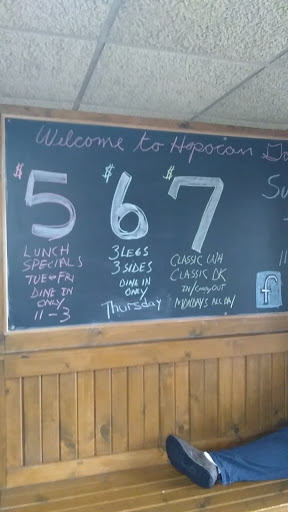 Welcome to Hopocan Ga
$5
LUNCH
SPECIALS
TUE-FRI
DINE IN
ONLY
11-3
$6
3 LEGS
3 SIDES
DINE IN
ONLY
Thursday
$7
CLASSIC WH
CLASSIC DK
IN/CARRYOUT
MONDAYS ALL DAY
Su
11
f